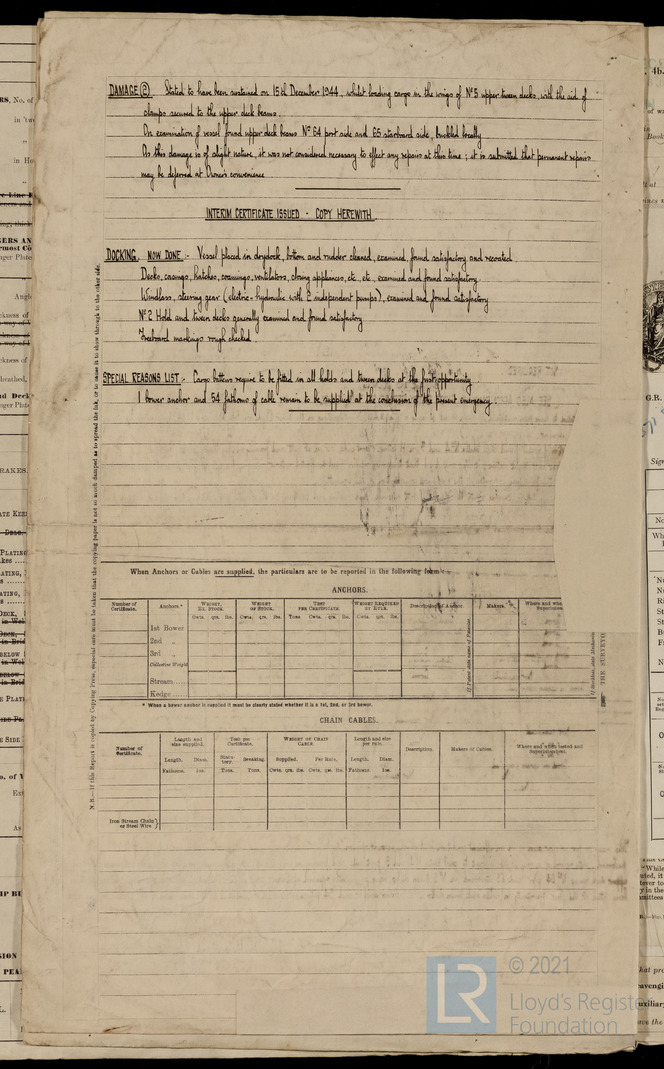 DAMAGE (2). Stated to have been sustained on 15th December 1944, whilst loading cargo in the wings of No 5 upper tween decks, with the aid of
clamps secured to the upper deck beams.
On examination of vessel found upper deck beams No 64 port side and 65 starboard side, buckled locally
As this damage is of slight nature, it was not considered necessary to effect any repairs at this time; it is submitted that permanent repairs
may be deferred at Owners convenience
INTERIM CERTIFICATE ISSUED - COPY HEREWITH
DOCKING, NOW DONE :- Vessel placed in drydock, bottom and rudder cleaned, examined, found satisfactory and recoated
Decks, casings, hatches, coamings, ventilators, closing appliances, etc, etc, examined and found satisfactory.
Windlass, steering gear (electro-hydraulic with 2 independent pumps), examined and found satisfactory
No 2 Hold and tween decks generally examined and found satisfactory
Freeboard markings rough checked.
SPECIAL REASONS LIST :- Cargo battens require to be fitted in all holds and tween decks at the first opportunity
1 bower anchor and 54 fathoms of cable remain to be supplied at the conclusion of the present emergency.
N.B.—If this Report is copied by Copying Press, especial care must be taken that the copying paper is not so much damped as to spread the ink, or to cause it to show through to the other side.
When Anchors or Cables are supplied, the particulars are to be reported in the following form:—
ANCHORS.
Number of Certificate. Anchors.* WEIGHT, EX. STOCK. WEIGHT OF STOCK. TEST PER CERTIFICATE. WEIGHT REQUIRED BY RULE. Description of Anchor. Makers. Where and when
Cwts. qrs. lbs. Cwts. qrs. lbs. Tons Cwts. qrs. lbs. Cwts. qrs. lbs.
1st Bower
2nd "
3rd "
Collective Weight
Stream
Kedge
If Patent state name of Patentee.
THE SURVEYO
* When a bower anchor is supplied it must be clearly stated whether it is a 1st, 2nd, or 3rd bower.
CHAIN CABLES.
Number of Certificate. Length and size supplied. Test per Certificate. WEIGHT OF CHAIN CABLE. Length and size per rule. Description. Makers of Cables. Where and when tested and Superintendent.
Length. Diam. Statutory. Breaking. Supplied. Per Rule. Length. Diam.
Fathoms. Ins. Tons. Tons. Cwts. qrs. lbs. Cwts. qrs. lbs. Fathoms. Ins.
Iron Stream Chain or Steel Wire
© 2021
LR
Lloyd's Registe
Foundation